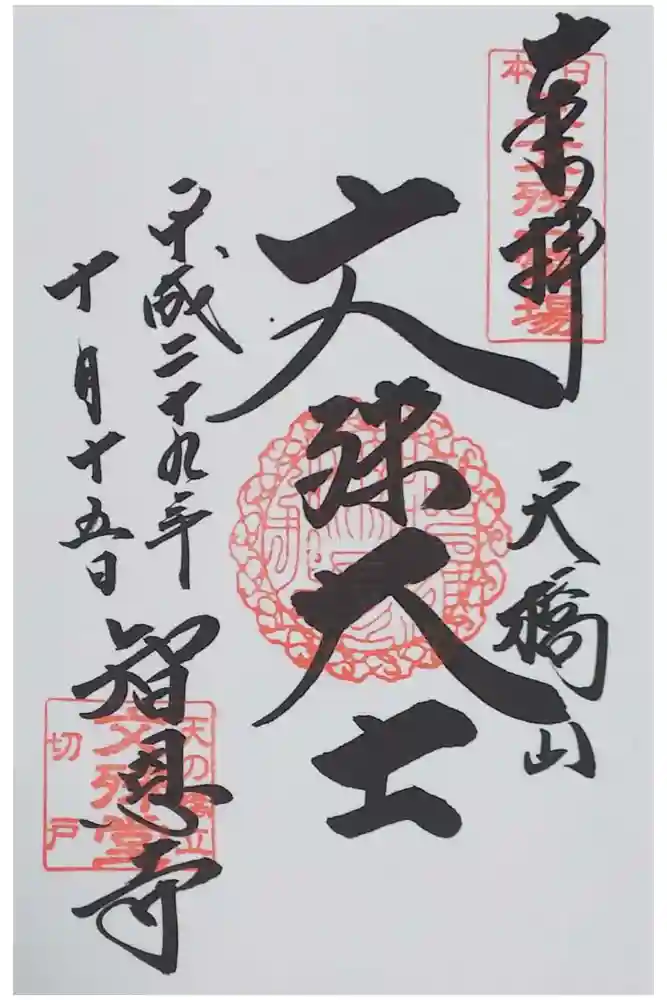 来拝
日本三文殊霊場
天橋山
文殊大士
平成二十九年
十月十五日
智恩寺
天の橋立
文殊堂
切戸